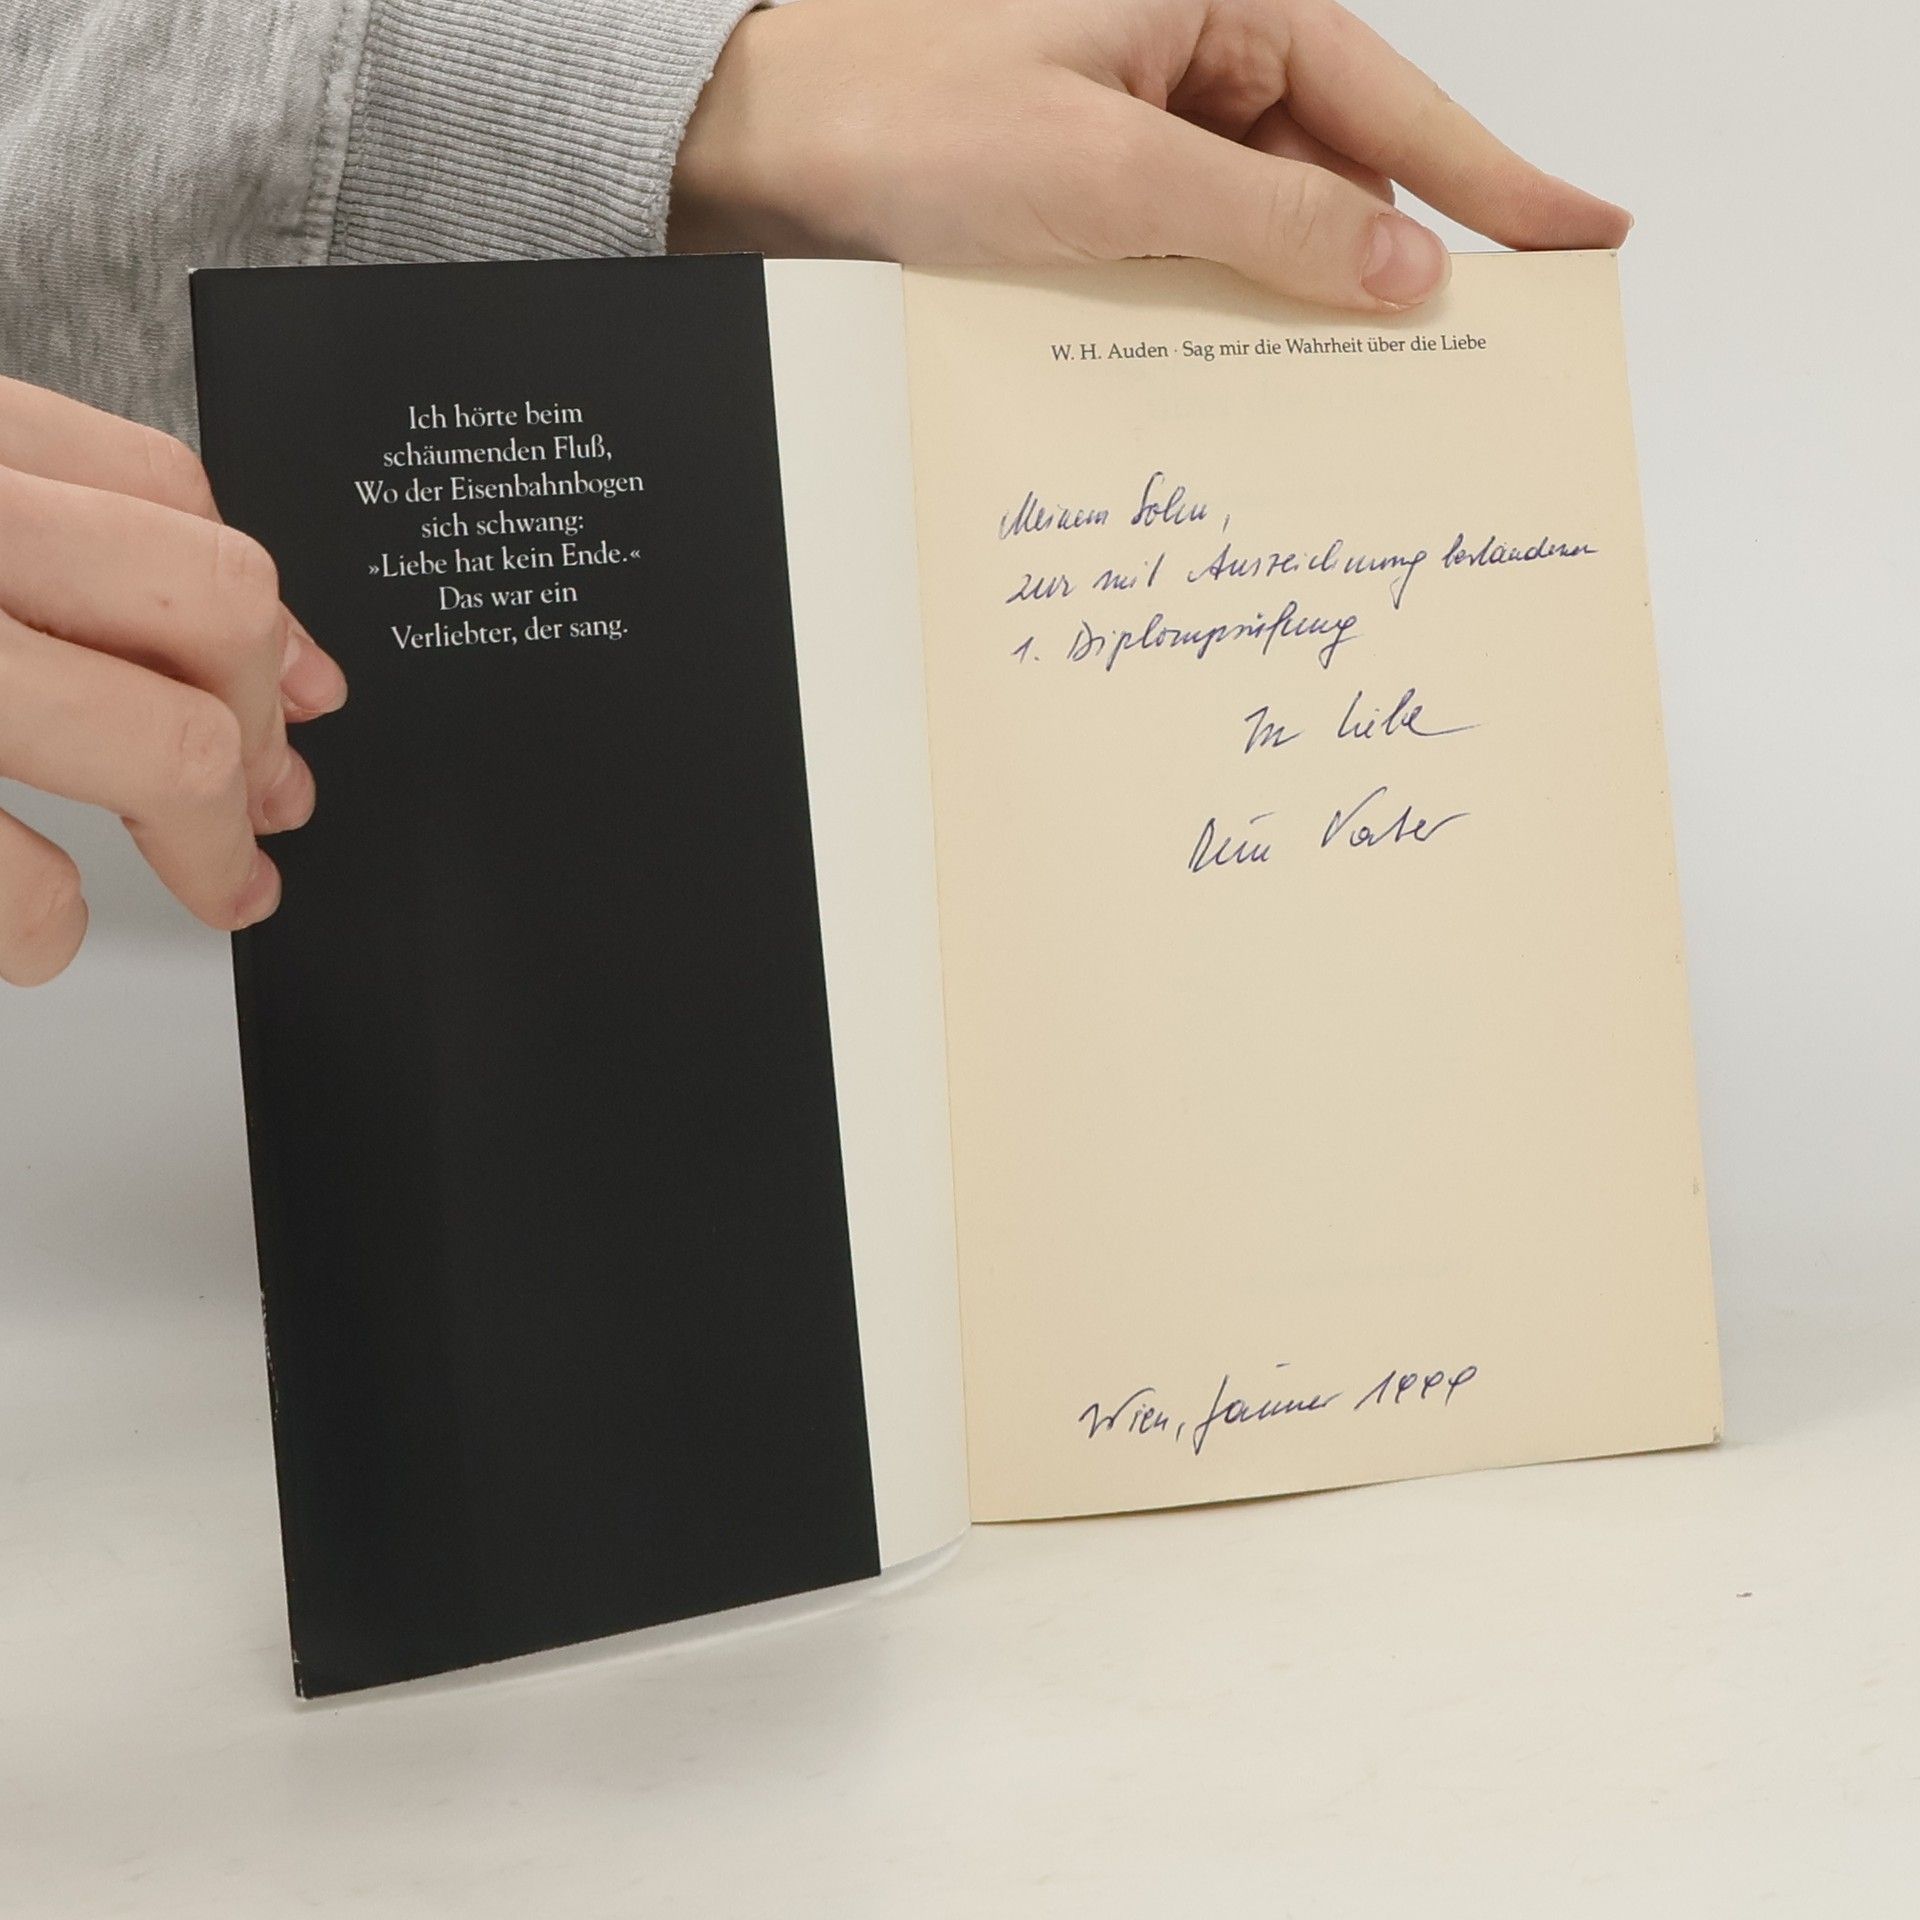 Ich hörte beim
schäumenden Fluß,
Wo der Eisenbahnbogen
sich schwang:
»Liebe hat kein Ende.«
Das war ein
Verliebter, der sang.
W. H. Auden · Sag mir die Wahrheit über die Liebe
Meinem Sohn,
zur mit Auszeichnung bestandenen
1. Diplomprüfung
In Liebe
Dein Vater
Wien, Jänner 1999